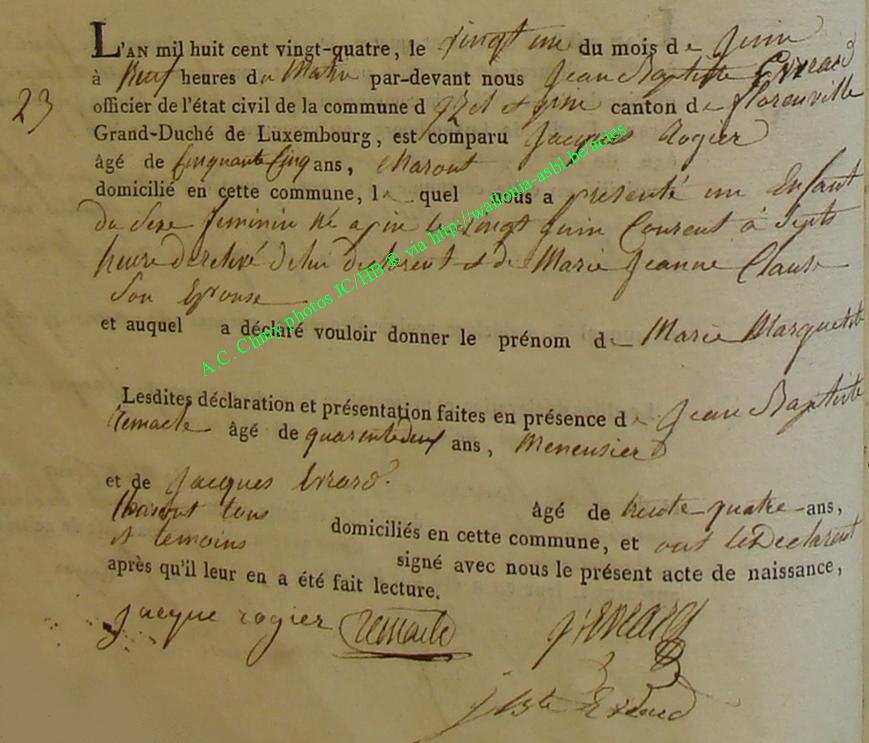 L'AN mil huit cent vingt-quatre, le vingt un du mois de juin
à neuf heures du Matin par-devant nous Jean Baptiste Evrard
23 officier de l'état civil de la commune d et pin canton de florenville
Grand-Duché de Luxembourg, est comparu Jacques Rogier
âgé de Cinquante Cinq ans, Maront
domicilié en cette commune, l quel nous a presenté un Enfant
du Sexe feminin né a pin le vingt juin Courent à Septs
heure de de lui declarent et de Marie Jeanne Clause
Son Epouse
et auquel a déclaré vouloir donner le prénom de Marie Marguerite
Lesdites déclaration et présentation faites en présence de Jean Baptiste
remacle âgé de quarente deux ans, Meneusier
et de Jacques Evrard
Maront tous âgé de trente quatre ans,
et temoins domiciliés en cette commune, et ont les Declarent
signé avec nous le présent acte de naissance,
après qu'il leur en a été fait lecture.
jacque rogier remacle j evrard
j Bte Evrard
A.C. Chiny photos JC/HB ® via http://wallonia-asbl.be/actes